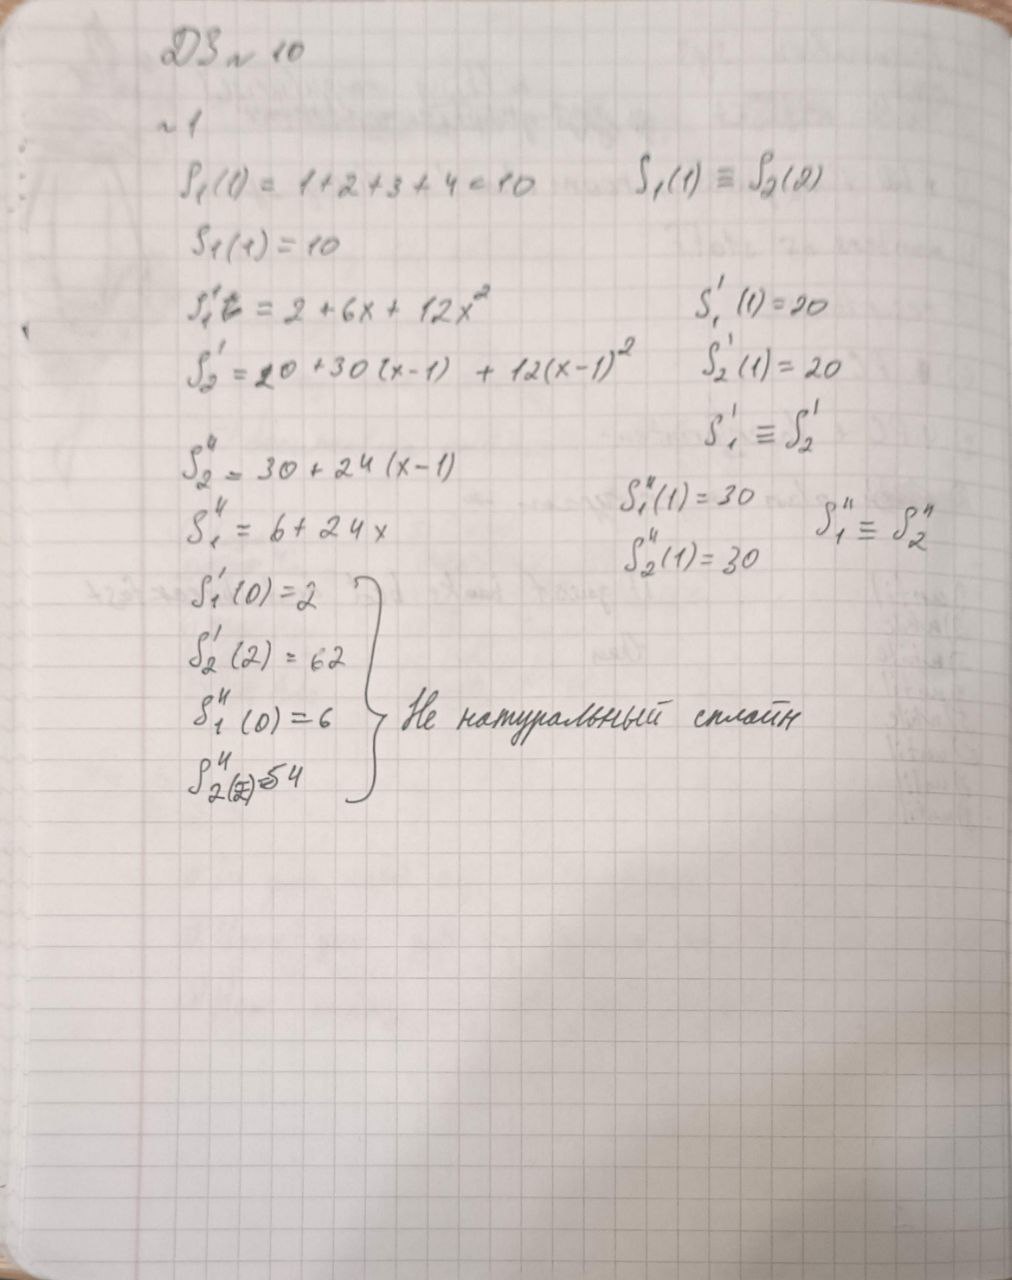 ДЗ ~ 10
~ 1
S₁(1) = 1+2+3+4 = 10 S₁(1) ≡ S₂(2)
S₁(1) = 10
S₁' = 2 + 6x + 12x² S₁'(1) = 20
S₂' = 20 + 30(x-1) + 12(x-1)² S₂'(1) = 20
S₁' ≡ S₂'
S₂" = 30 + 24(x-1) S₁"(1) = 30
S₁" = 6 + 24x S₂"(1) = 30 S₁" ≡ S₂"
S₁'(0) = 2
S₂'(2) = 62
S₁"(0) = 6 Не натуральный сплайн
S₂"(2) = 54